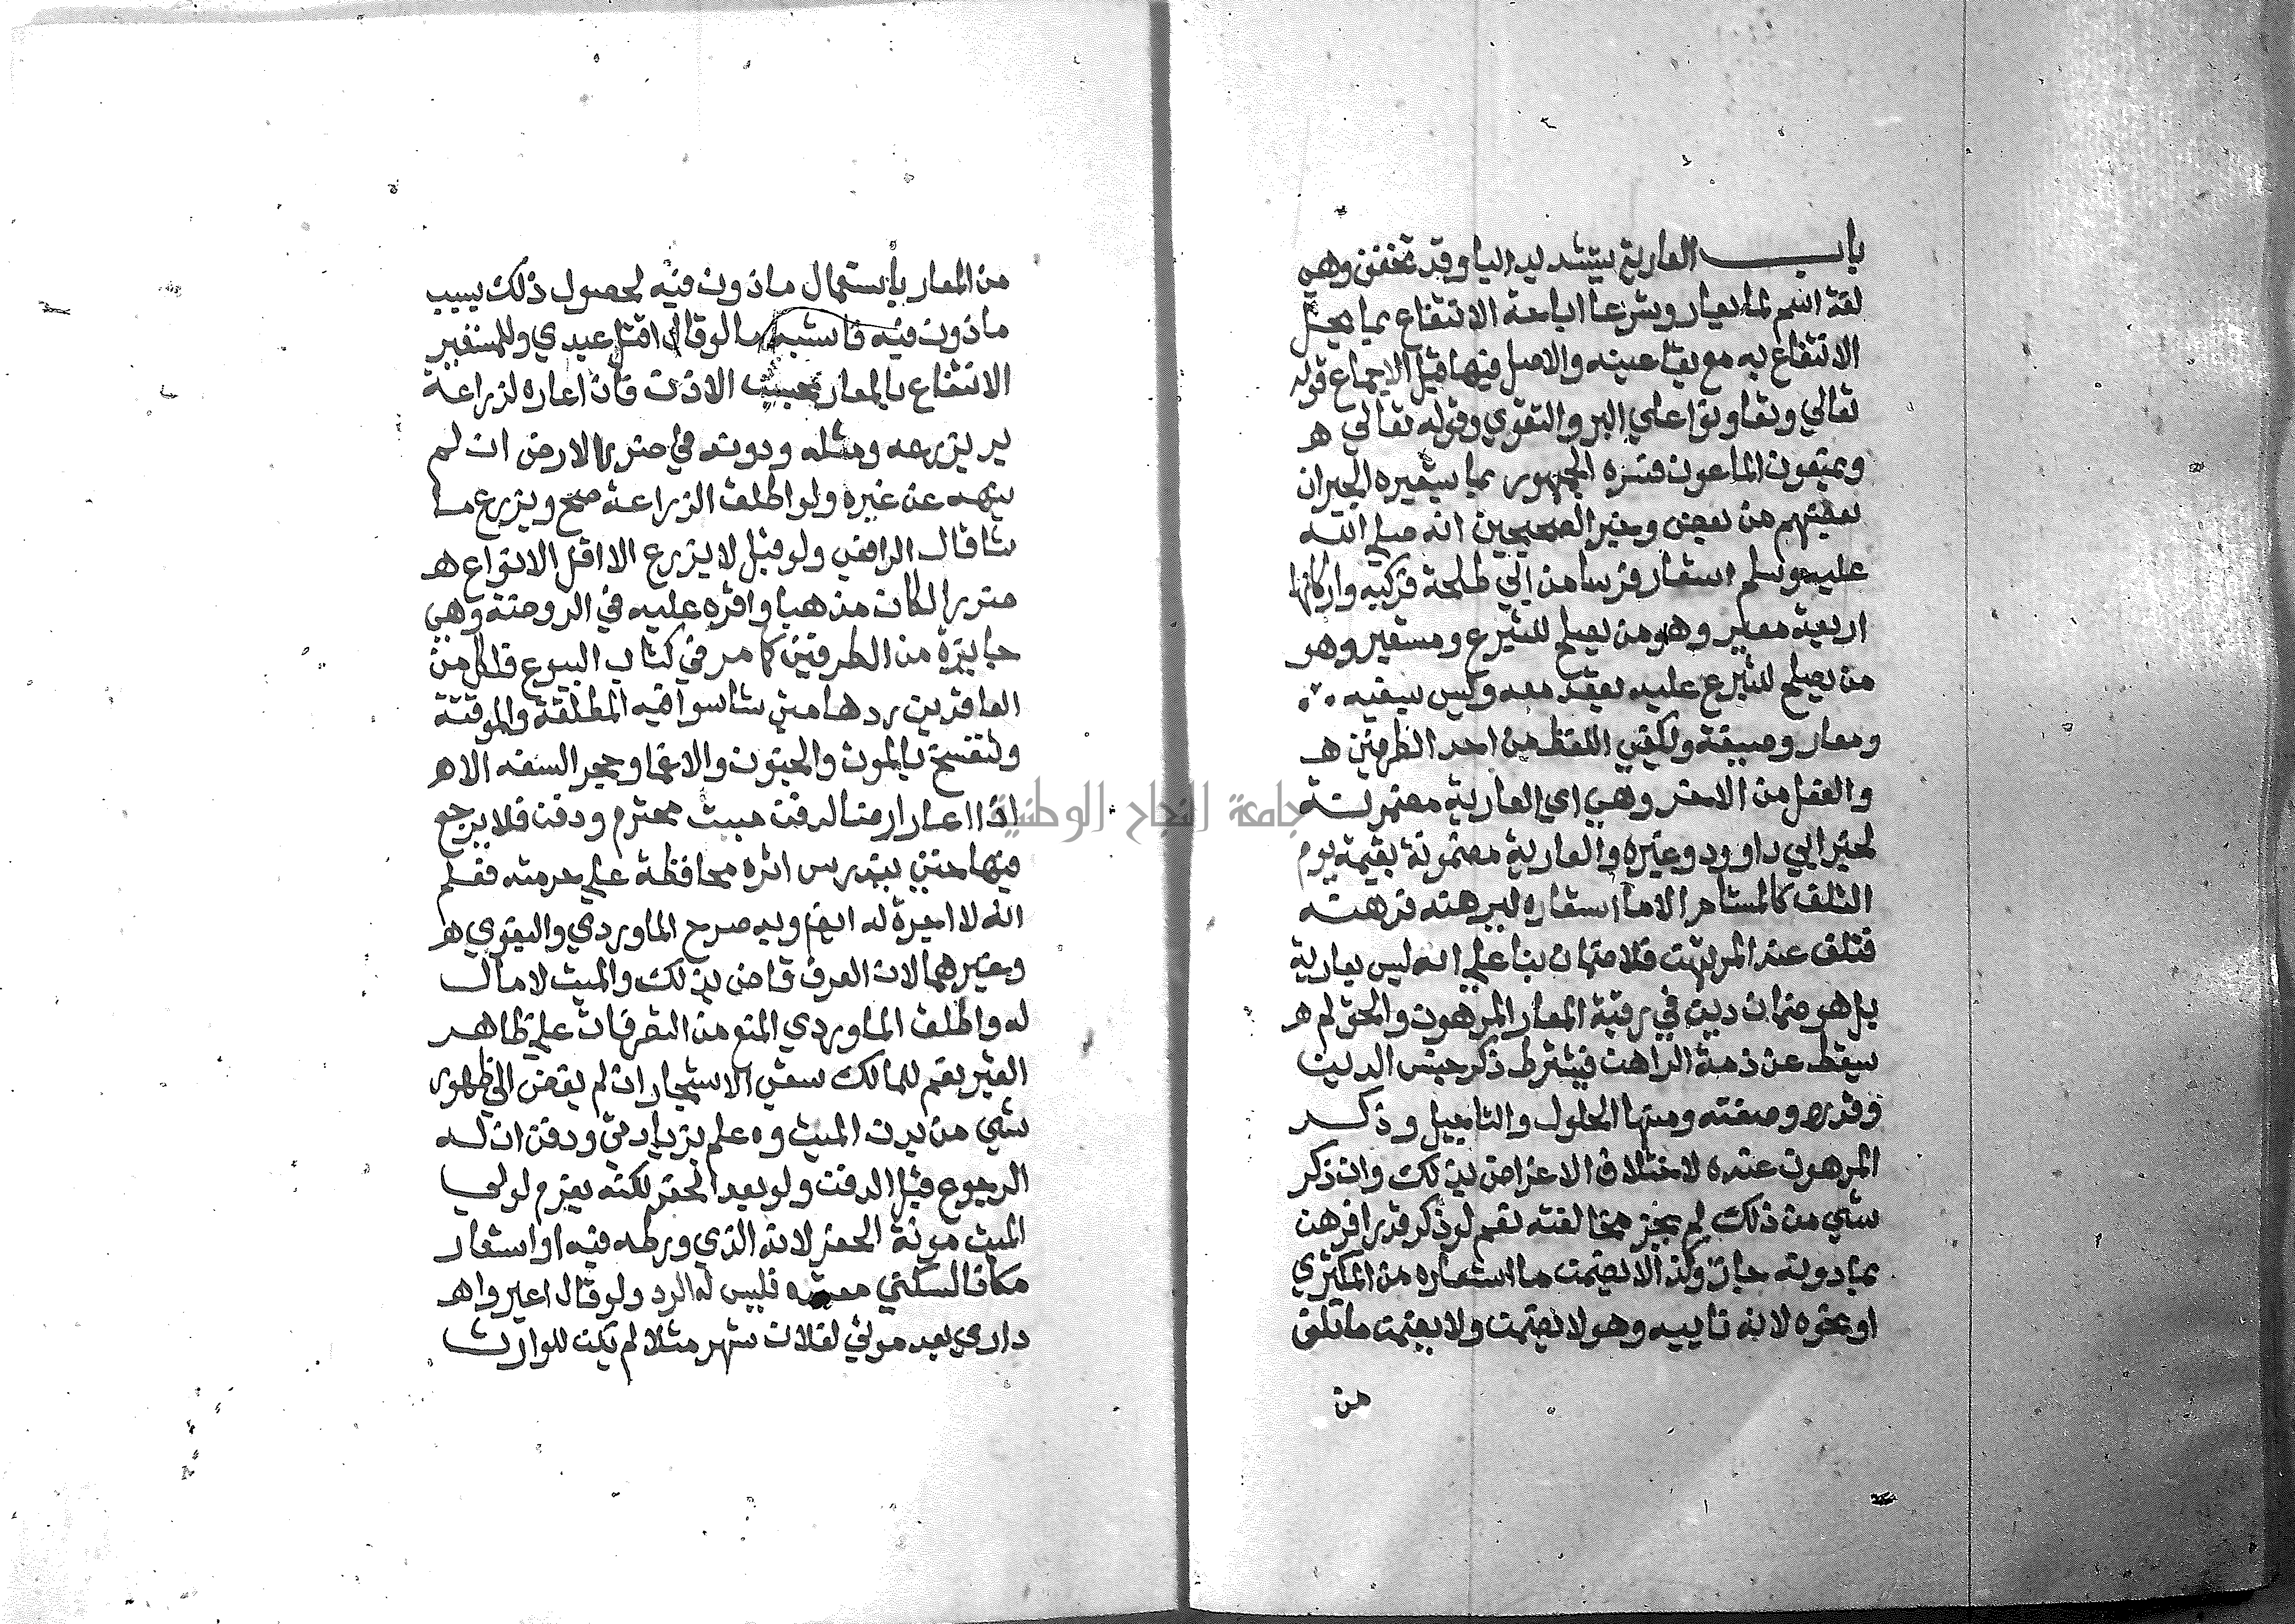 باب العارية بتشديد اليا وقد تخفف وهي
لغة اسم لما يعار وشرعا اباحة الانتفاع بما يحل
الانتفاع به مع بقا عينه والاصل فيها قبل الاجماع قوله
تعالي وتعاونوا علي البر والتقوي وقوله تعالي ه
ويمنعون الماعون فسره الجمهور بما يستعيره الجيران
بعضهم من بعض وخبر الصحيحين انه صلي الله
عليه وسلم استعار فرسا من ابي طلحة فركبه واركانها
اربعة معير وهو من يصلح للتبرع ومستعير وهو
من يصلح للتبرع عليه بعقد معه وليس سفيه
ومعار وصيغة ويكفي اللفظ من احد الطرفين ه
والفعل من الاخر وهي اي العارية مضمونة
لخبر ابي داوود وغيره والعارية مضمونة بقيمة يوم
التلف كالمستام الا ما استعاره ليرهنه فرهنه
فتلف عند المرتهن فلا ضمان بنا علي انه ليس بعارية
بل هو ضمان دين في رقبة المعار المرهون والحق لم ه
يسقط عن ذمة الراهن فيشترط ذكر جنس الدين
وقدره وصفته ومنها الحلول والتاجيل وذكر
المرهون عنده لاختلاف الاغراض بذلك وان ذكر
شي من ذلك لم يجز مخالفته نعم لو ذكر قدرا فرهن
بما دونه جاز وكذا لا يضمن ما استعاره من المكتري
او نحوه لانه نايبه وهو لا يضمن ولا يضمن ما تلف
من
من المعار بأستعمال ماذون فيه لحصول ذلك بسبب
ماذون فيه فاشبه ما لو قال اقتل عبدي وللمستعير
الانتفاع بالمعار بحسب الاذن فان اعاره لزراعة
بر يزرعه ومثله ودونه في ضرر الارض ان لم
ينهه عن غيره ولو اطلق الزراعة صح ويزرع ما
شا قال الرافعي ولو قيل لا يزرع الا اقل الانواع ه
ضررا لكان مذهبا واقره عليه في الروضة وهي
جايزة من الطرفين كما مر في كتاب البيوع فلكل من
العاقدين ردها متي شا سوا فيه المطلقة والموقتة
وتنفسخ بالموت والجنون والاغما وحجر السفه الا ه
اذا اعار ارضا لدفن ميت محترم ودفن فلا يرجع
فيها حتي يندرس اثره محافظة علي حرمته فعلم
انه لا اجرة له ايضا وبه صرح الماوردي والبغوي ه
وغيرهما لان العرف قاض بذلك والميت لا مال
له واطلق الماوردي المنع من التصرفات علي ظاهر
القبر نعم للمالك سقي الاشجار ان لم يفض الي ظهور
شي من بدن الميت وعلم بزيادتي ودفن ان له
الرجوع قبل الدفن ولو بعد الحفر لكنه يغرم لولي
الميت مونة الحفر لانه الذي ورطه فيه او استعار
مكانا لسكني معتدة فليس له الرد ولو قال اعيروا ه
داري بعد موتي لفلان شهر مثلا لم يكن للوارث
جامعة النجاح الوطنية